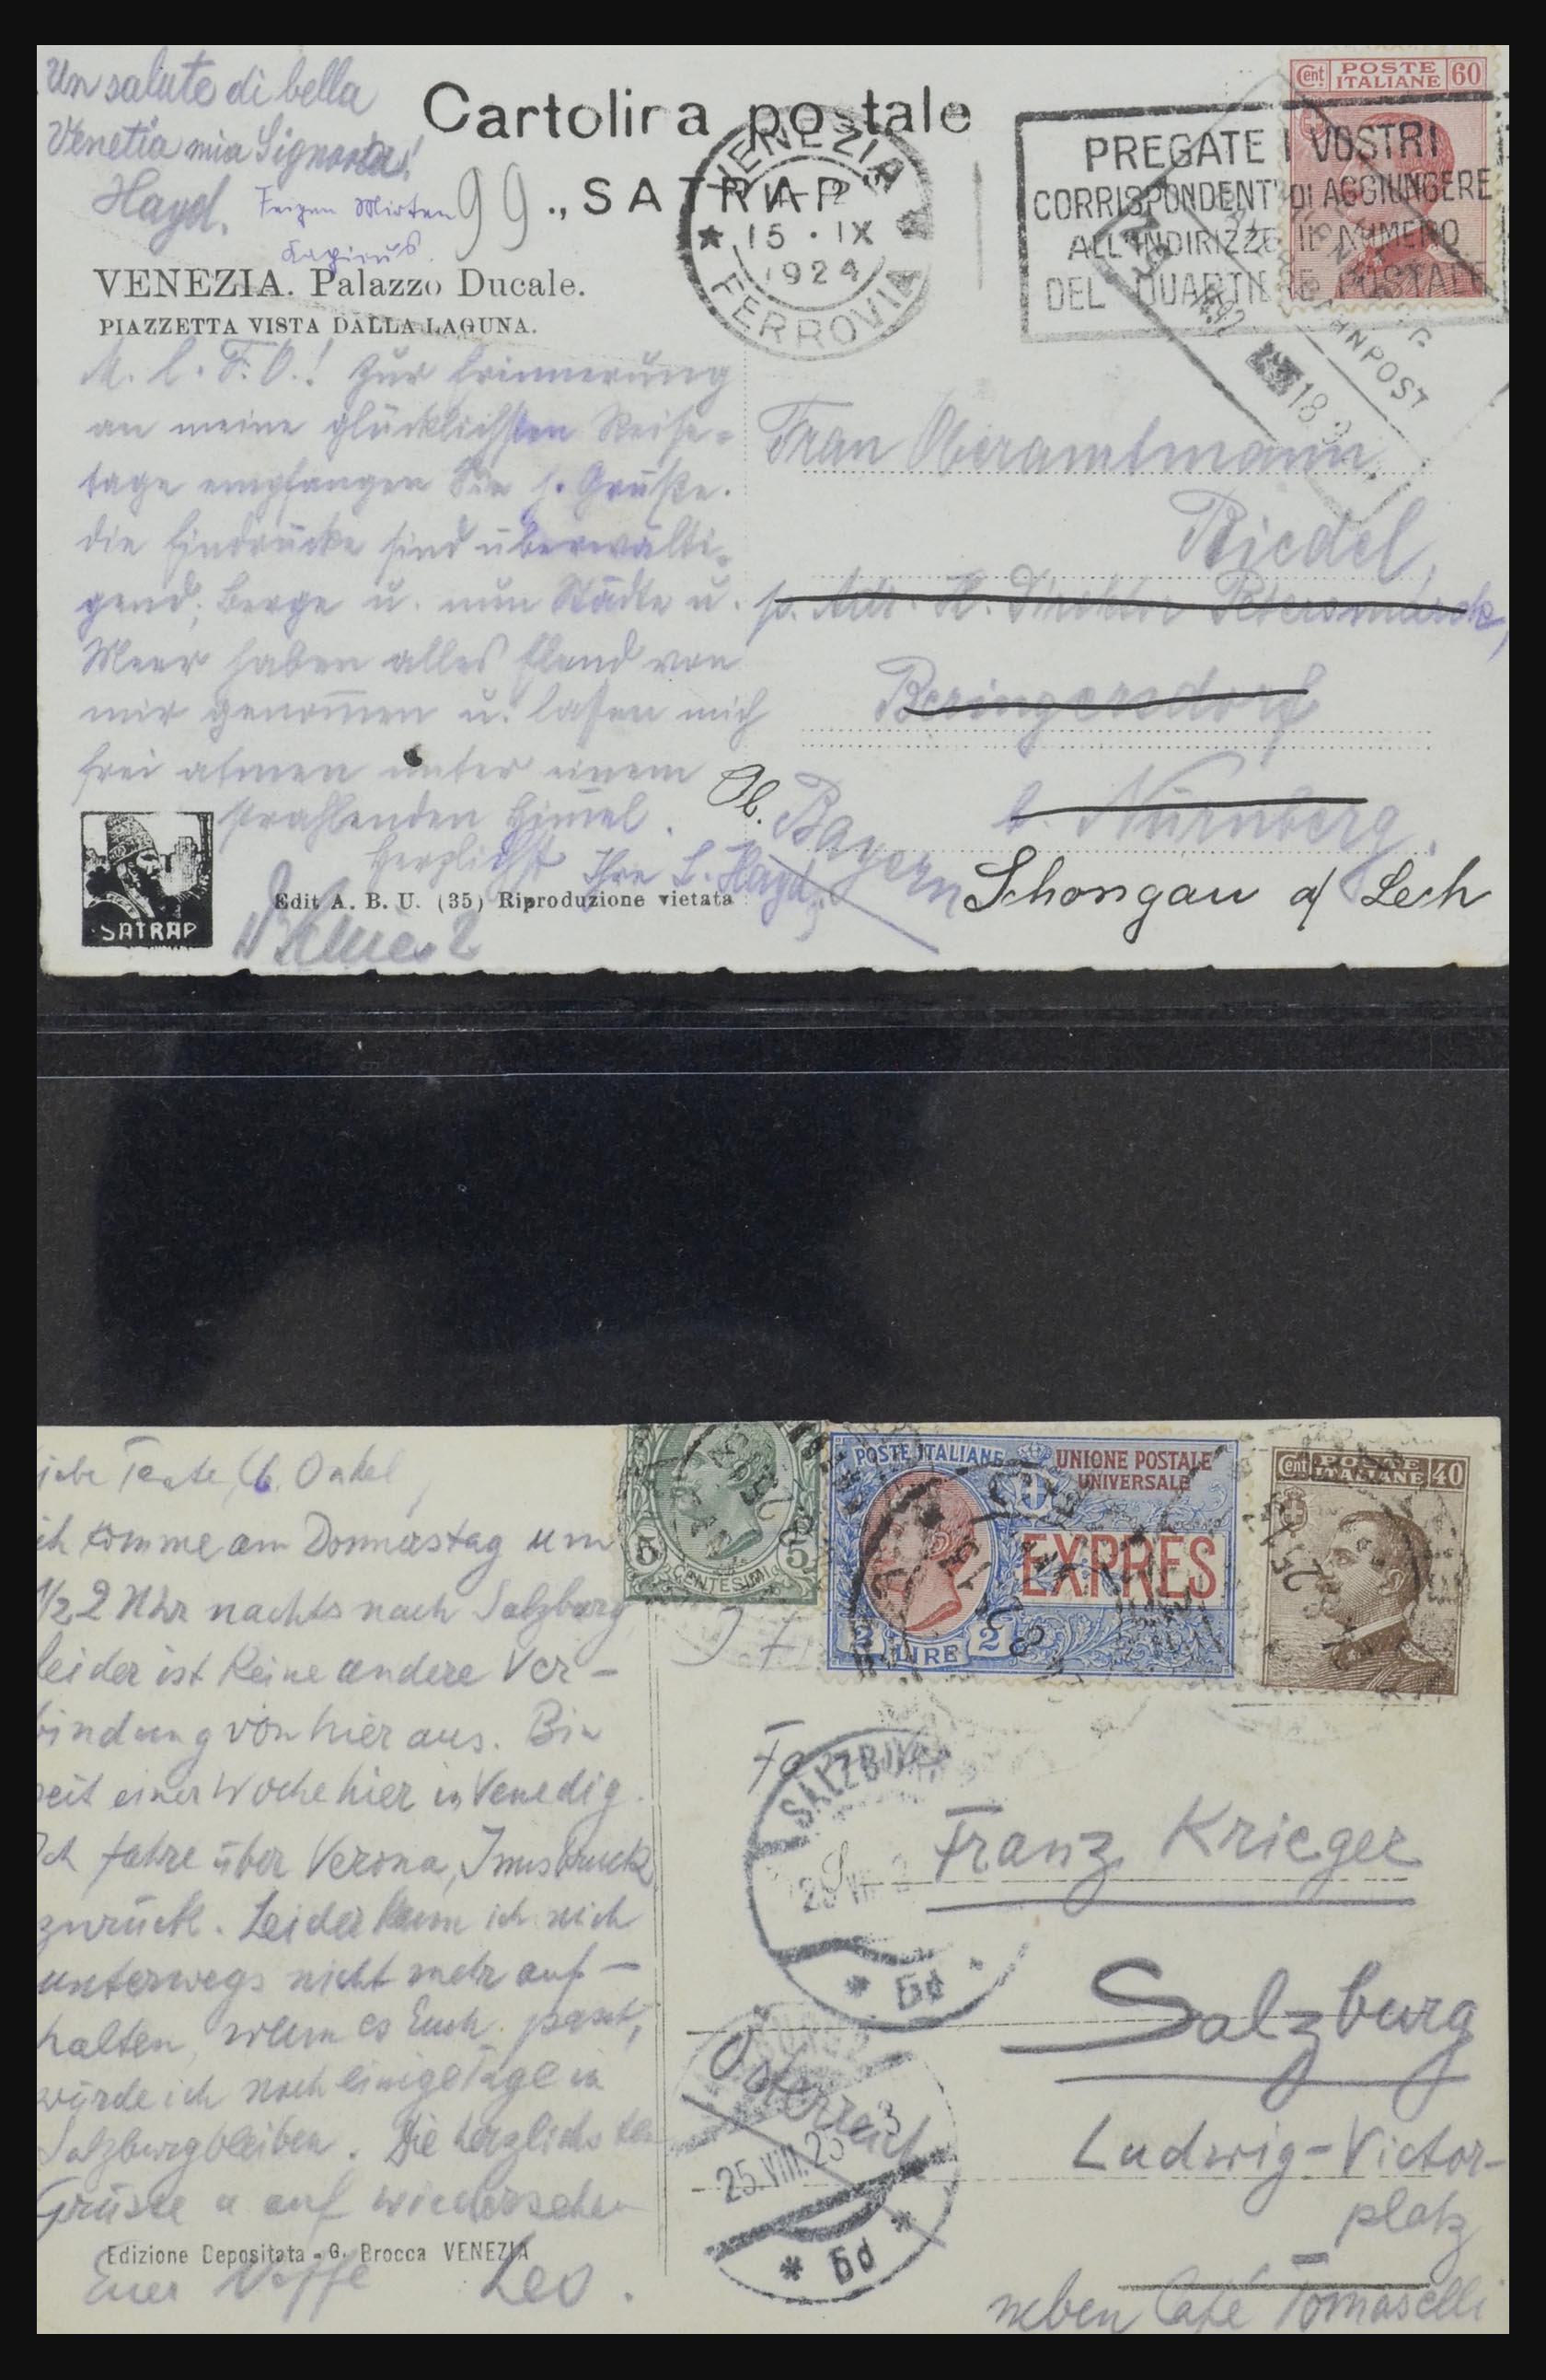 Un salute di bella
Venetia mia Signora!
Hayd.
Feigen Mirten
99
Cartolina postale
„SATRAP"
VENEZIA. Palazzo Ducale.
PIAZZETTA VISTA DALLA LAGUNA.
VENEZIA
15 · IX
1924
FERROVIA
PREGATE I VOSTRI
CORRISPONDENTI DI AGGIUNGERE
ALL'INDIRIZZO IL NUMERO
DEL QUARTIERE POSTALE
Cent POSTE ITALIANE 60
BAHNPOST
18 9
M. l. F. O.! Zur Erinnerung
an meine glücklichsten Reise-
tage empfangen Sie h. Grüße.
die Eindrücke sind überwälti-
gend; Berge u. nun Städte u.
Meer haben alles Elend von
mir genommen u. lassen mich
frei atmen unter einem
strahlenden Himmel.
Herzlichst Ihre L. Hayd
Frau Oberamtmann
Riedel,
p. Adr. H. Direktor
Beringersdorf
b. Nürnberg.
Ob. Bayern
Schongau a/ Lech
SATRAP
Edit A. B. U. (35) Riproduzione vietata
5 CENTESIMI 5
POSTE ITALIANE UNIONE POSTALE
UNIVERSALE
EXPRES
2 LIRE 2
Cent POSTE ITALIANE 40
iebe Tante, lb. Onkel,
ich komme am Donnerstag um
1/2 2 Uhr nachts nach Salzburg
leider ist keine andere Ver-
bindung von hier aus. Bin
seit einer Woche hier in Venedig.
Ich fahre über Verona, Innsbruck
zurück. Leider kann ich mich
unterwegs nicht mehr auf-
halten, wenn es Euch passt,
würde ich noch einige Tage in
Salzburg bleiben. Die herzlichsten
Grüsse u auf wiedersehen
Euer Neffe Leo.
Edizione Depositata - G. Brocca VENEZIA
Fa
SALZBURG
25 VIII
* 6d *
Franz Krieger
Salzburg
Österreich
25.VIII.25
* 6d *
Ludwig-Victor-
platz
neben Café Tomaselli